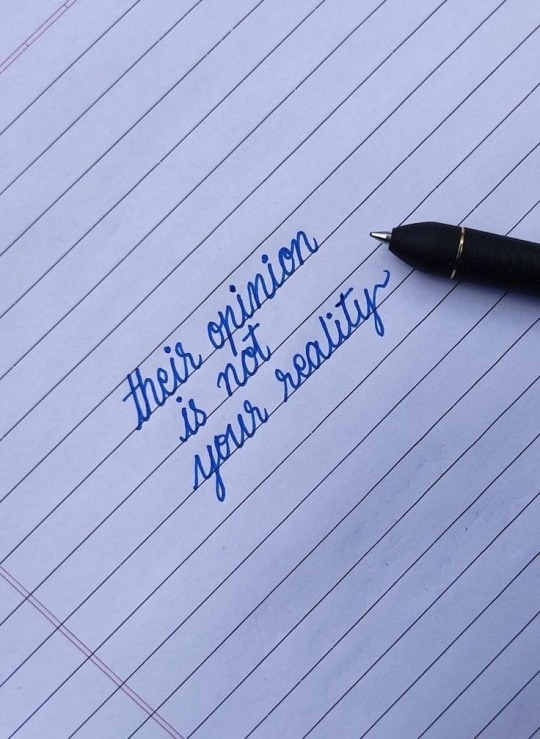 their opinion
is not
your reality